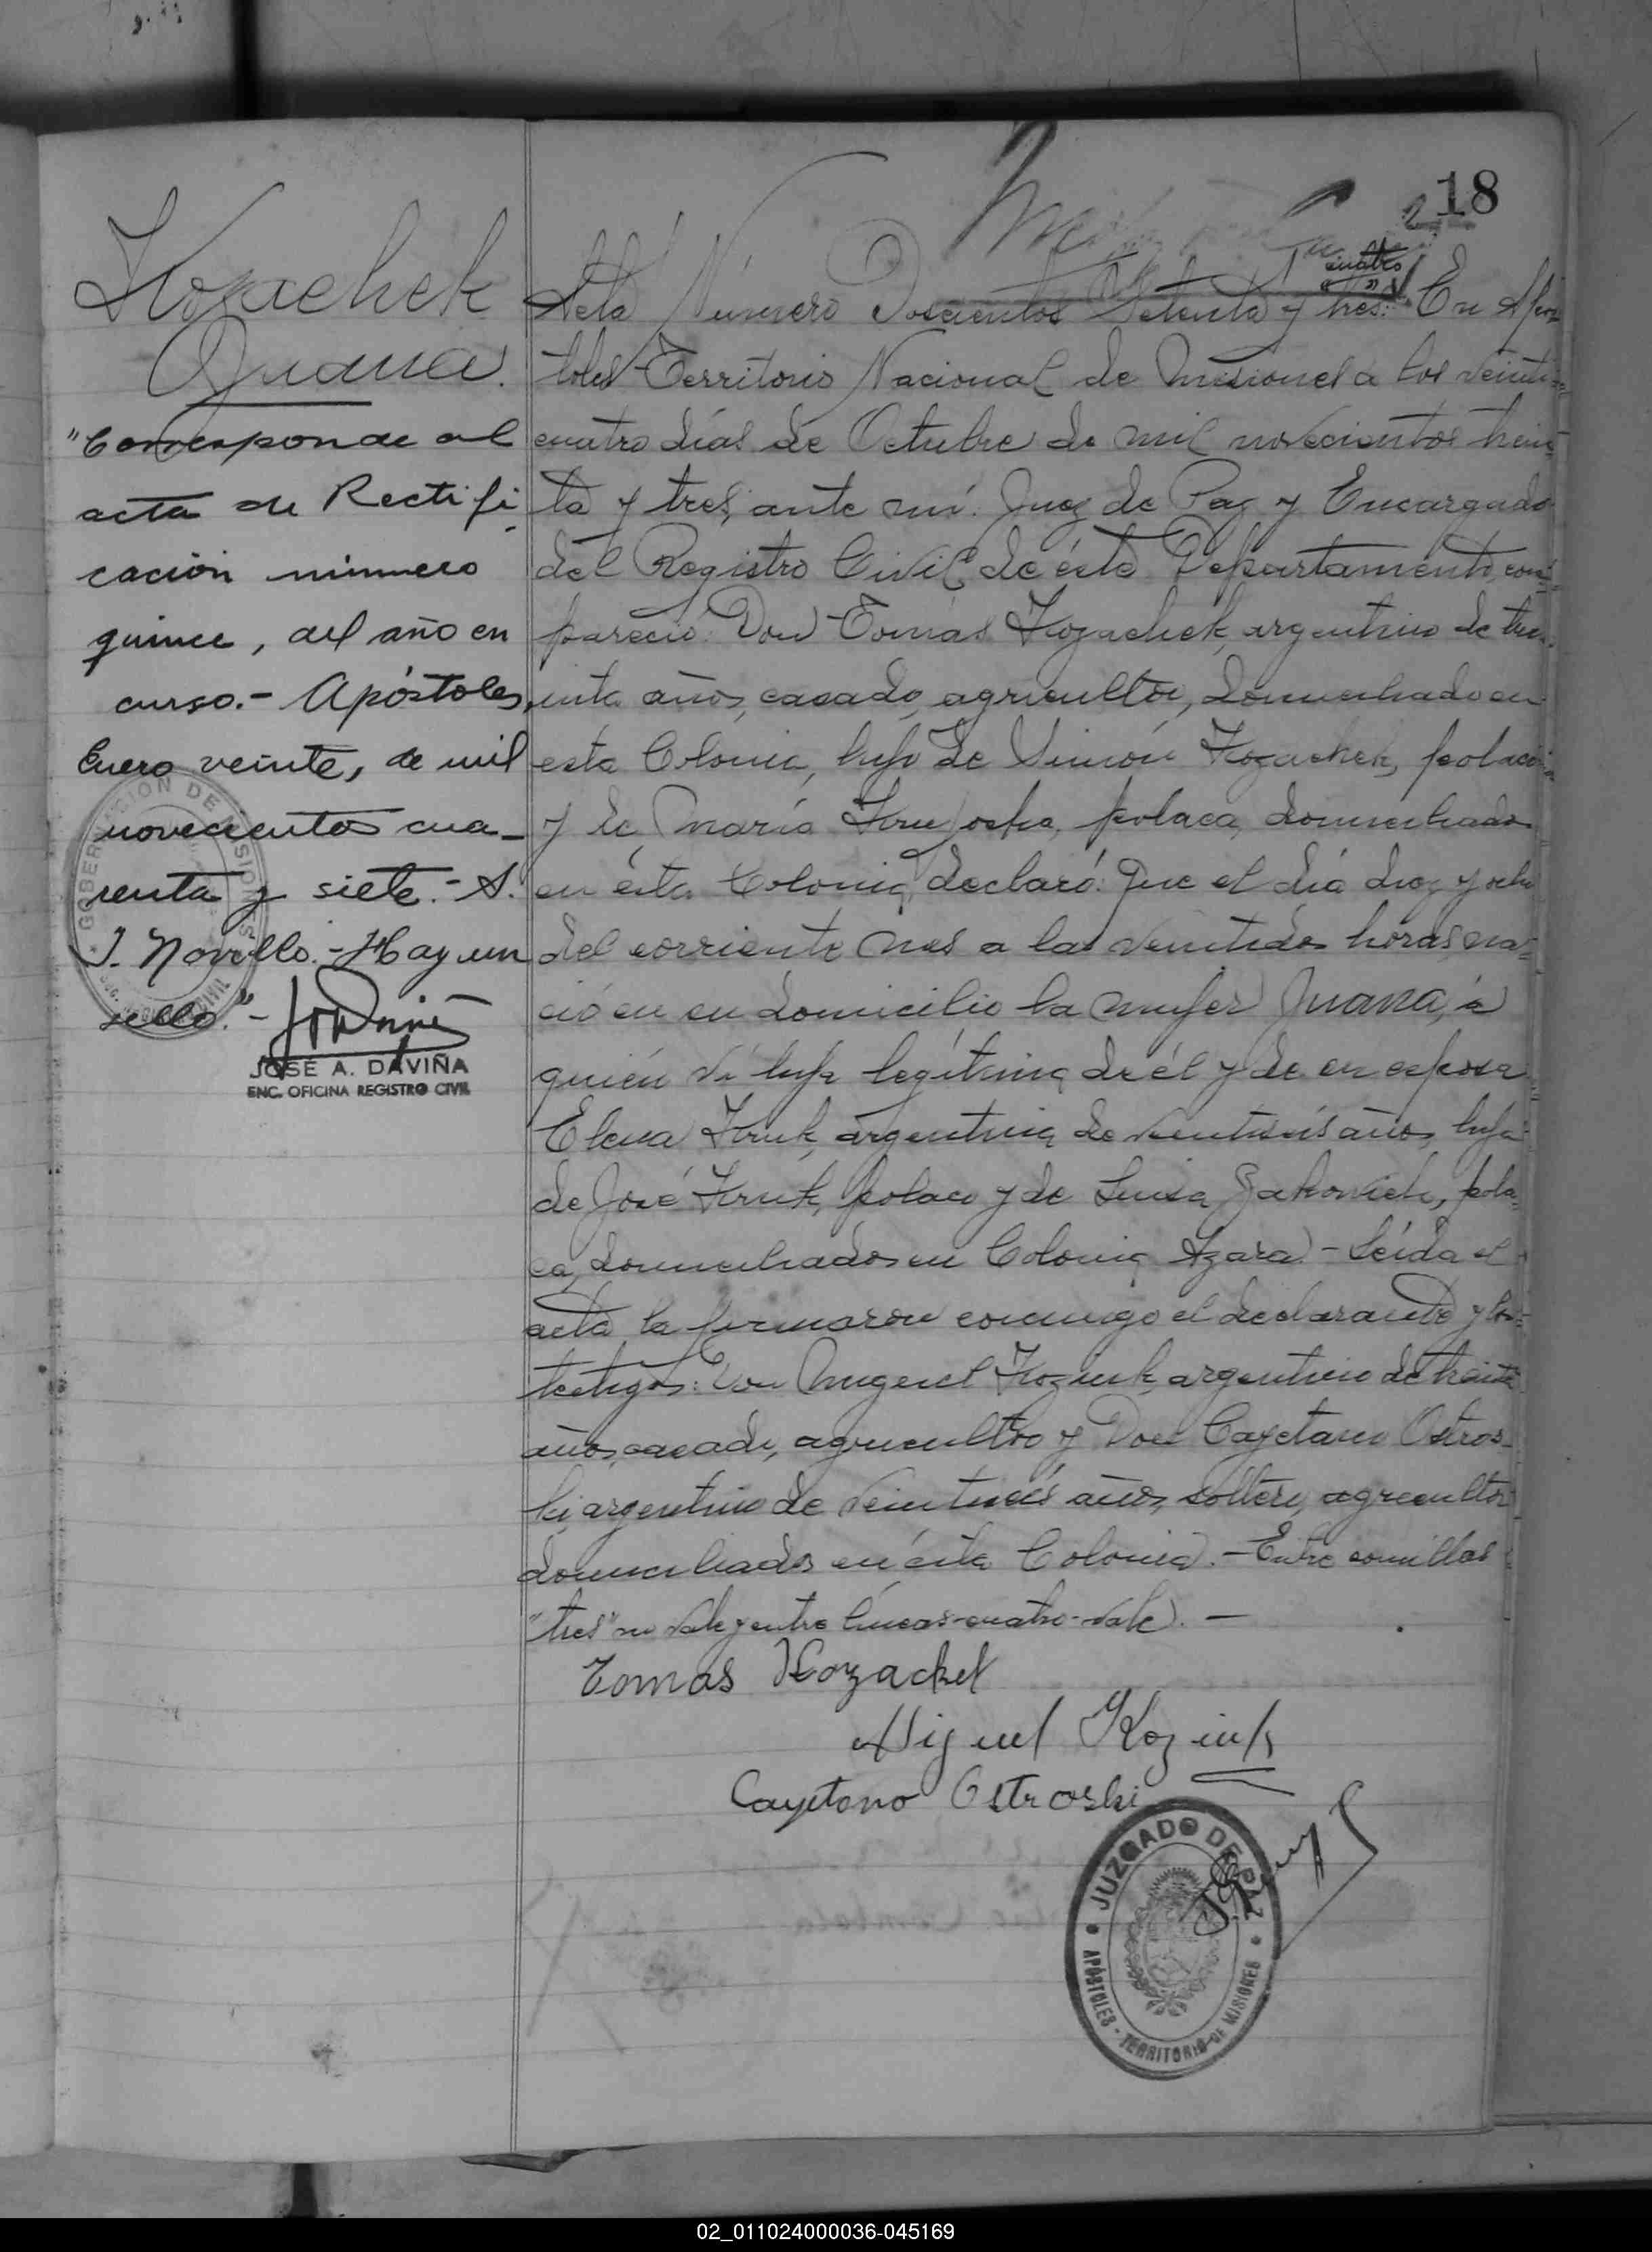 18
Kozachek
Juana.
"Corresponde al
acta de Rectifi
cación número
quince, del año en
curso.- Apóstoles,
Enero veinte, de mil
novecientos cua-
renta y siete.- A.
J. Novillo.- Hay un
sello."-
JOSE A. DAVIÑA
ENC. OFICINA REGISTRO CIVIL
cuatro
Acta Número Doscientos Setenta y tres: En Após
toles Territorio Nacional de Misiones a los veinti-
cuatro días de Octubre de mil novecientos trein-
ta y tres, ante mí: Juez de Paz y Encargado
del Registro Civil de éste Departamento, com-
pareció: Don Tomás Kozachek, argentino de tre-
inta años, casado, agricultor, domiciliado en
esta Colonia, hijo de Simón Kozachek, polaco
y de María polaca, domiciliados
en ésta Colonia, declaró: Que el día diez y ocho
del corriente mes a las veintidos horas, na-
ció en su domicilio la mujer Juana, a
quién vi hija legítima de él y de su esposa
Elena Kruk, argentina de veintiseis años, hija
de José Kruk, polaco y de Luisa Zakovich, pola
ca, domiciliados en Colonia Azara.- Leída el
acta la firmaron conmigo el declarante y los-
testigos: Don Miguel Koziuk, argentino de treinta
años, casado, agricultor y Don Cayetano Ostros-
ki, argentino de veintiseis años, soltero, agricultor
domiciliados en ésta Colonia.- Entre comillas
"tres" no vale y entre líneas-cuatro-vale.-
Tomas Kozachek
Miguel Koziuk
Cayetano Ostroski
JUZGADO DE PAZ
APÓSTOLES - TERRITORIO DE MISIONES
02_011024000036-045169